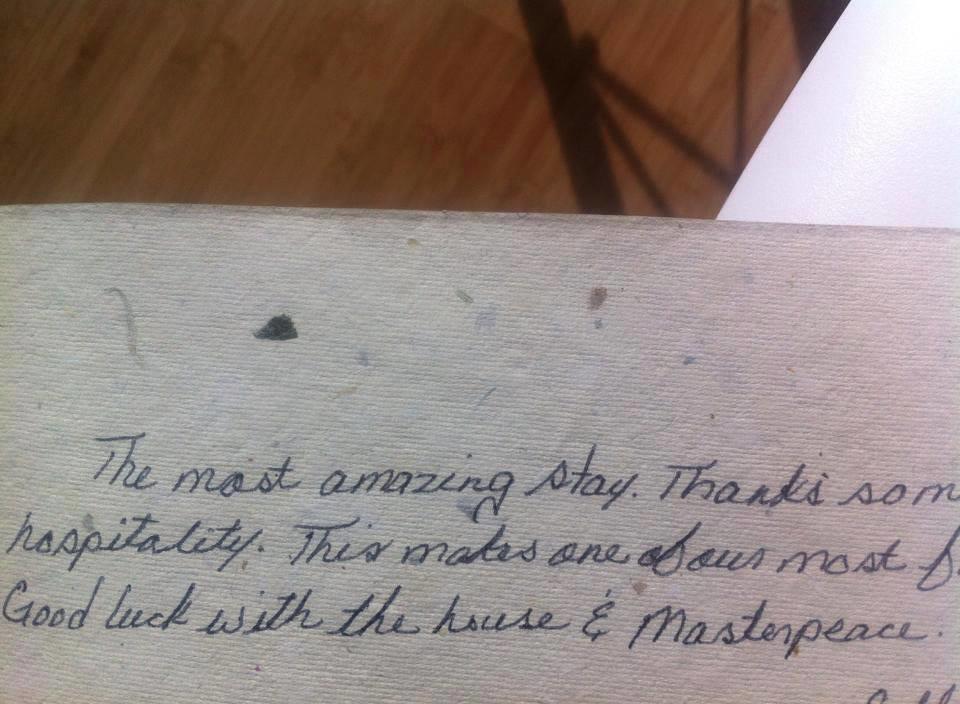 The most amazing stay. Thanks som
hospitality. This makes one of our most f
Good luck with the house & Masterpeace.